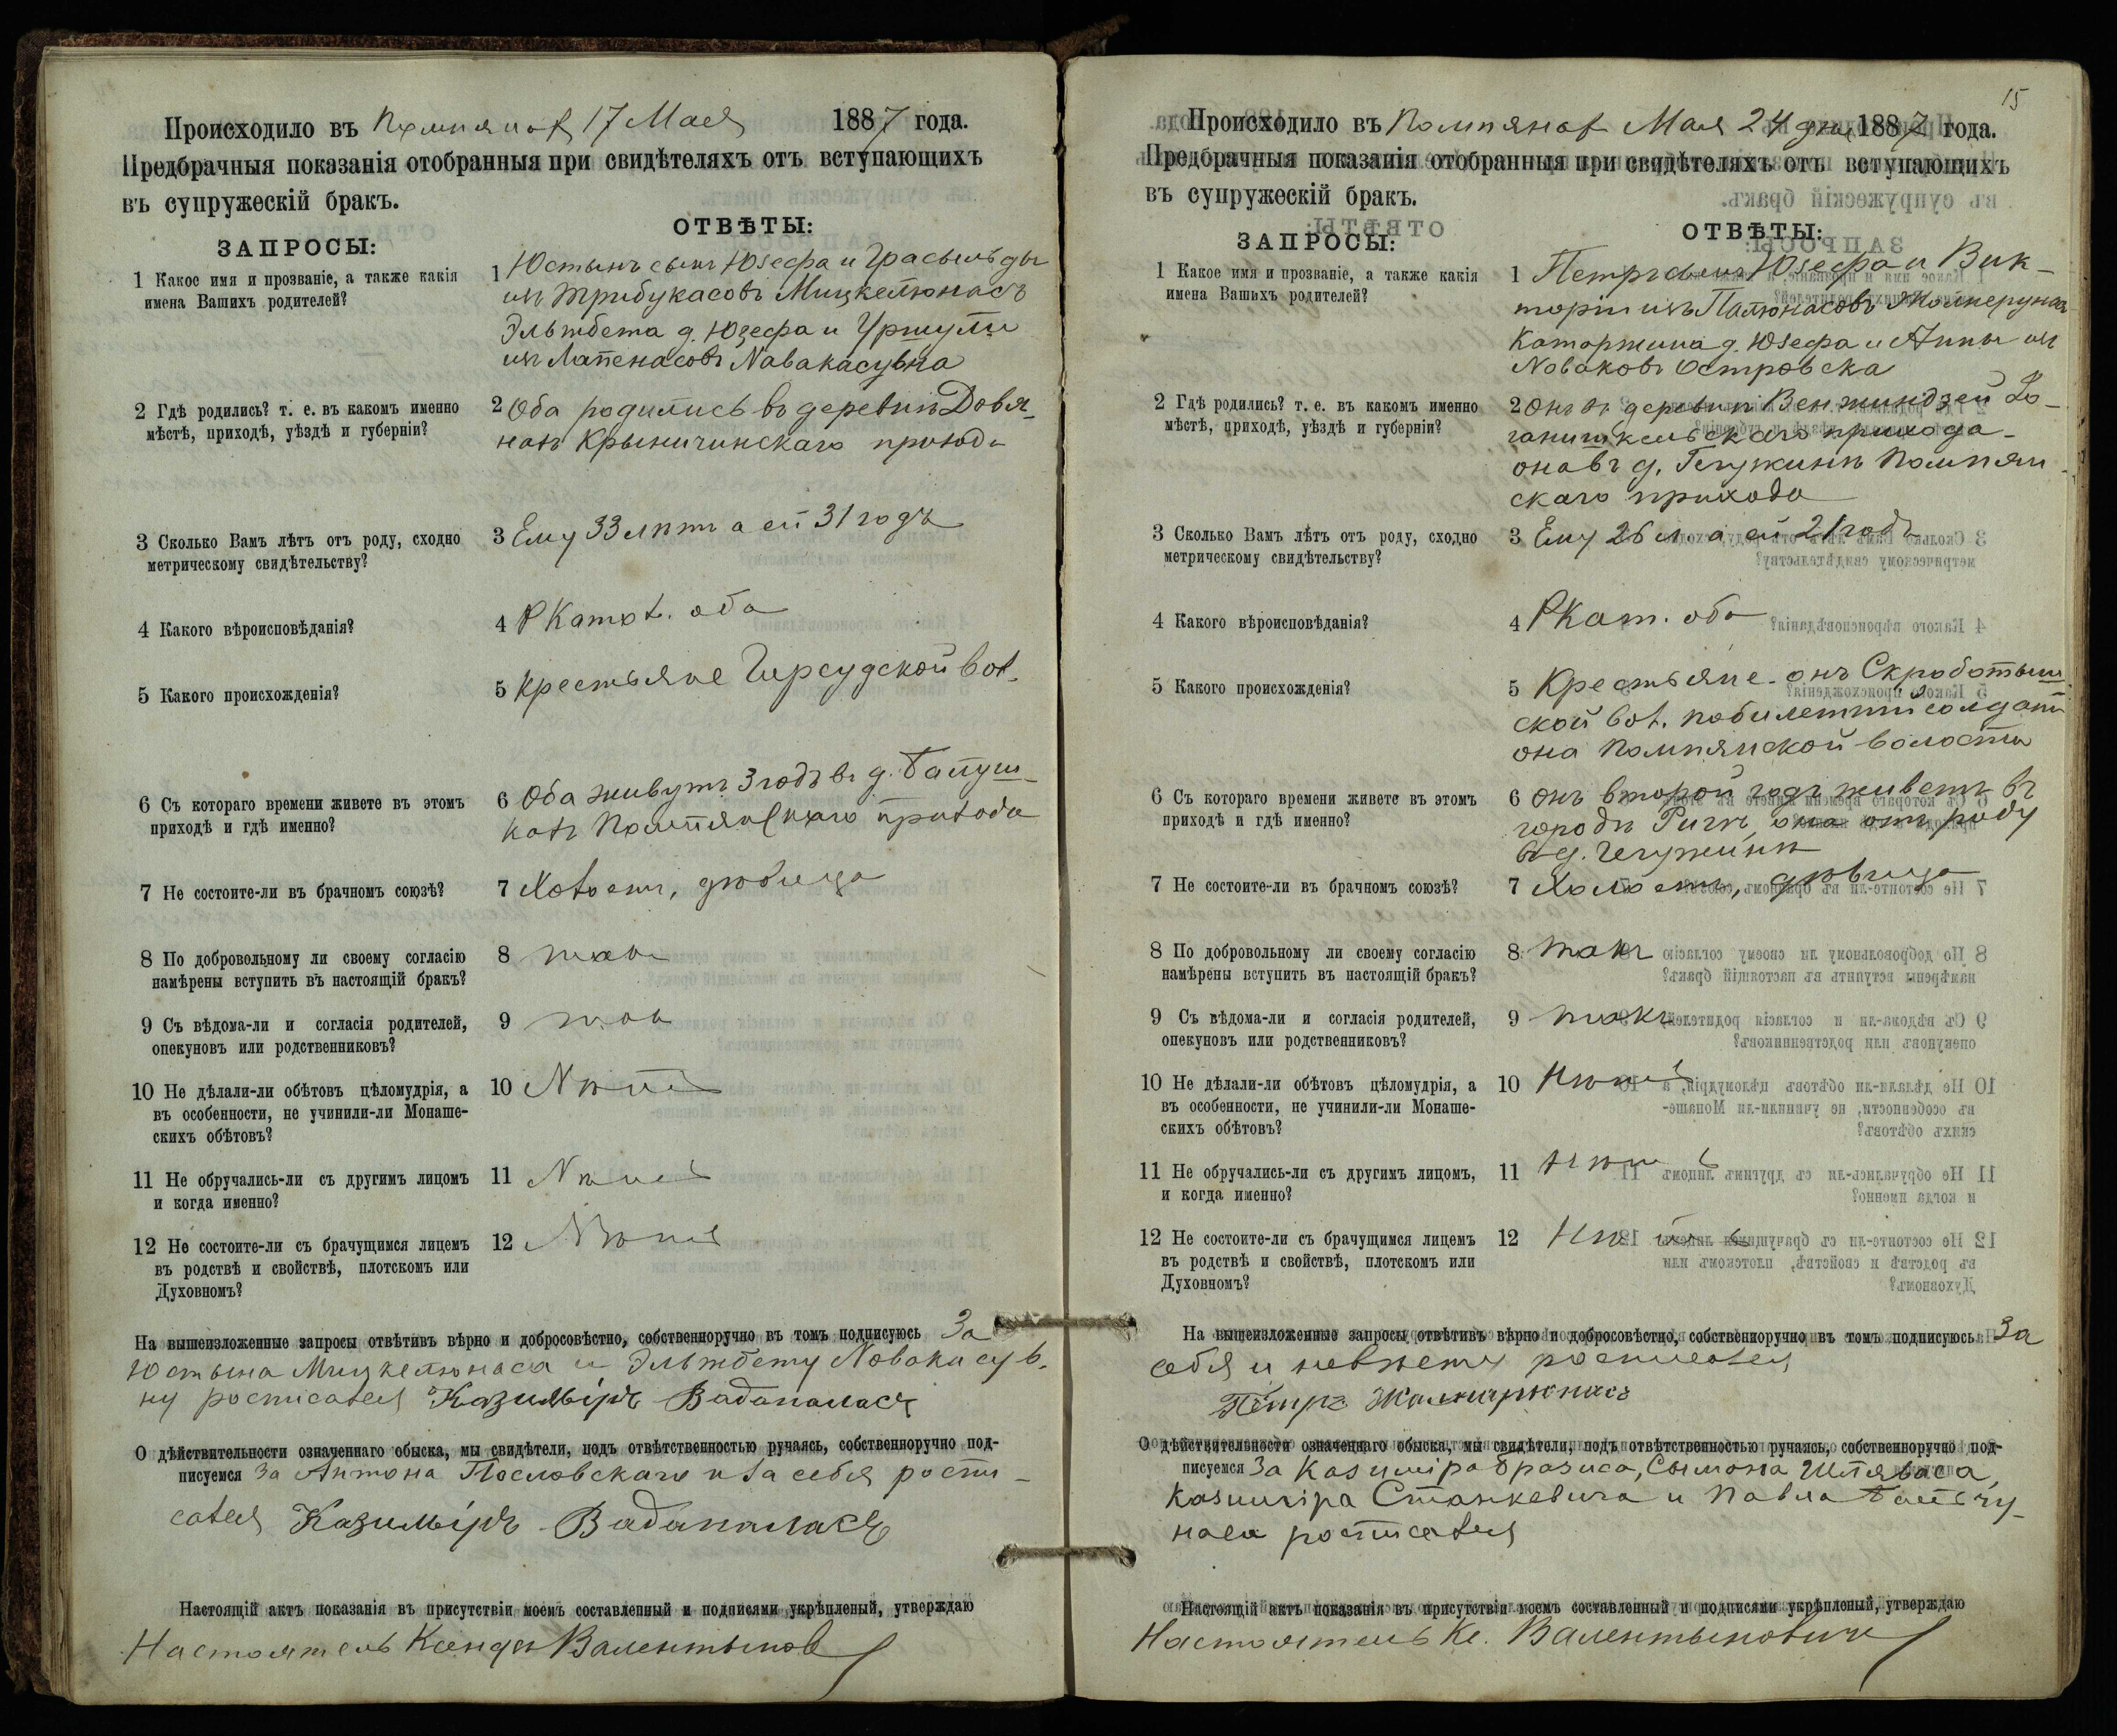 Происходило въ Помпянах 17 Мая 1887 года.
Предбрачныя показанія отобранныя при свидѣтеляхъ отъ вступающихъ
въ супружескій бракъ.
ЗАПРОСЫ:
ОТВѢТЫ:
1 Какое имя и прозваніе, а также какія
имена Вашихъ родителей?
1 Юстынъ сынъ Юзефа и
изъ Трибукасовъ Мицкелюнасъ
Эльжбета д. Юзефа и Уршули
изъ Лапенасовъ Навакасувна
2 Гдѣ родились? т. е. въ какомъ именно
мѣстѣ, приходѣ, уѣздѣ и губерніи?
2 Оба родились въ деревни Довя-
нахъ Крыничинскаго прихода
3 Сколько Вамъ лѣтъ отъ роду, сходно
метрическому свидѣтельству?
3 Ему 33 лѣтъ а ей 31 годъ
4 Какого вѣроисповѣданія?
4 РКатол. оба
5 Какого происхожденія?
5 Крестьяне Гирсудской вол.
6 Съ котораго времени живете въ этомъ
приходѣ и гдѣ именно?
6 Оба живутъ 3 годъ въ д.
Помпянскаго прихода
7 Не состоите-ли въ брачномъ союзѣ?
7 Холостъ, дѣвица
8 По добровольному ли своему согласію
намѣрены вступить въ настоящій бракъ?
8 такъ
9 Съ вѣдома-ли и согласія родителей,
опекуновъ или родственниковъ?
9 такъ
10 Не дѣлали-ли обѣтовъ цѣломудрія, а
въ особенности, не учинили-ли Монаше-
скихъ обѣтовъ?
10 Нѣтъ
11 Не обручались-ли съ другимъ лицомъ
и когда именно?
11 Нѣтъ
12 Не состоите-ли съ брачущимся лицемъ
въ родствѣ и свойствѣ, плотскомъ или
Духовномъ?
12 Нѣтъ
На вышеизложенные запросы отвѣтивъ вѣрно и добросовѣстно, собственноручно въ томъ подписуюсь За
Юстына Мицкелюнаса и Эльжбету Новакасув-
ну росписался Казимъіръ Вадапаласъ
О дѣйствительности означеннаго обыска, мы свидѣтели, подъ отвѣтственностью ручаясь, собственноручно под-
писуемся За Антона Пословскаго и за себя роспи-
сался Казимъіръ Вадапаласъ
Настоящій актъ показанія въ присутствіи моемъ составленный и подписями укрѣпленый, утверждаю
Настоятель Ксендзъ Валентынов
15
Происходило въ Помпянах Мая 24 дня 1887 года.
Предбрачныя показанія отобранныя при свидѣтеляхъ отъ вступающихъ
въ супружескій бракъ.
ЗАПРОСЫ:
ОТВѢТЫ:
1 Какое имя и прозваніе, а также какія
имена Вашихъ родителей?
1 Петръ сынъ Юзефа и Вик-
торіи изъ Палюнасовъ
Катаржина д. Юзефа и Анны изъ
Новаковъ Островска
2 Гдѣ родились? т. е. въ какомъ именно
мѣстѣ, приходѣ, уѣздѣ и губерніи?
2 Онъ въ деревни
прихода -
она въ д. Гегужинѣ Помпян-
скаго прихода
3 Сколько Вамъ лѣтъ отъ роду, сходно
метрическому свидѣтельству?
3 Ему 26 л. а ей 21 годъ
4 Какого вѣроисповѣданія?
4 РКат. оба
5 Какого происхожденія?
5 Крестьяне - онъ Скроботыш-
ской вол. побилетный солдатъ
она Помпянской волости
6 Съ котораго времени живете въ этомъ
приходѣ и гдѣ именно?
6 Онъ второй годъ живетъ въ
городѣ Ригѣ, она отъ роду
въ д. Гегужинѣ
7 Не состоите-ли въ брачномъ союзѣ?
7 Холостъ, дѣвица
8 По добровольному ли своему согласію
намѣрены вступить въ настоящій бракъ?
8 такъ
9 Съ вѣдома-ли и согласія родителей,
опекуновъ или родственниковъ?
9 такъ
10 Не дѣлали-ли обѣтовъ цѣломудрія, а
въ особенности, не учинили-ли Монаше-
скихъ обѣтовъ?
10 Нѣтъ
11 Не обручались-ли съ другимъ лицомъ,
и когда именно?
11 Нѣтъ
12 Не состоите-ли съ брачущимся лицемъ
въ родствѣ и свойствѣ, плотскомъ или
Духовномъ?
12 Нѣтъ
На вышеизложенные запросы отвѣтивъ вѣрно и добросовѣстно, собственноручно въ томъ подписуюсь За
себя и невѣсту росписался
Петръ
О дѣйствительности означеннаго обыска, мы свидѣтели, подъ отвѣтственностью ручаясь, собственноручно под-
писуемся За Казиміра Бразиса, Сымона Шляваса,
Казиміра Станкевича и Павла
наса росписался
Настоящій актъ показанія въ присутствіи моемъ составленный и подписями укрѣпленый, утверждаю
Настоятель Кс. Валентынович